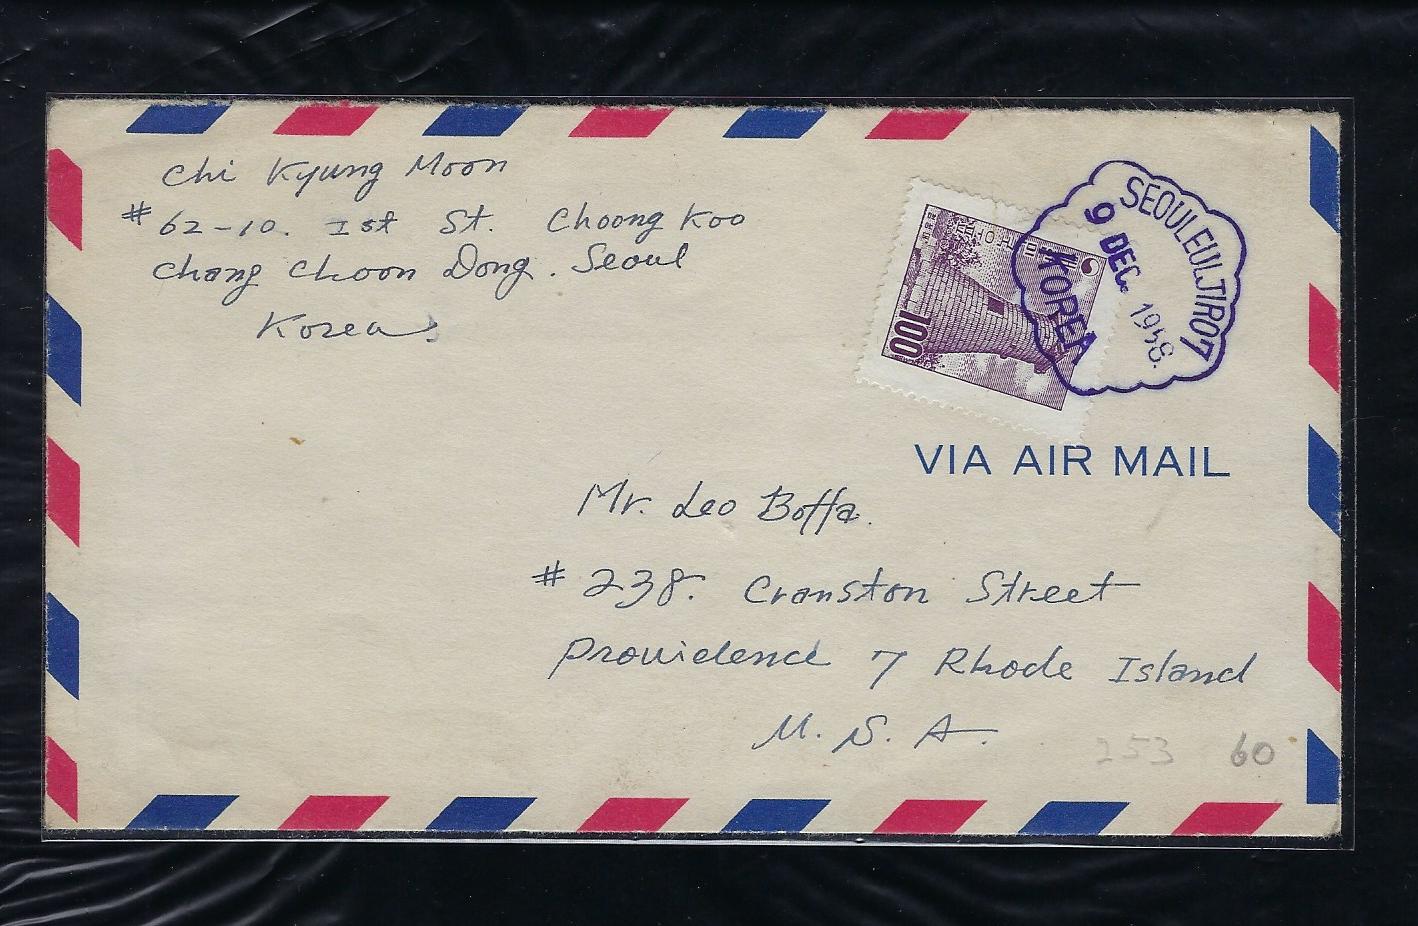 Chi Kyung Moon
# 62-10. 1st St. Choong Koo
Chang Choon Dong. Seoul
Korea
SEOULEULJIRO7
9 DEC. 1958.
KOREA
100
VIA AIR MAIL
Mr. Leo Boffa.
# 238. Cranston Street
Providence 7 Rhode Island
U. S. A.
253 60